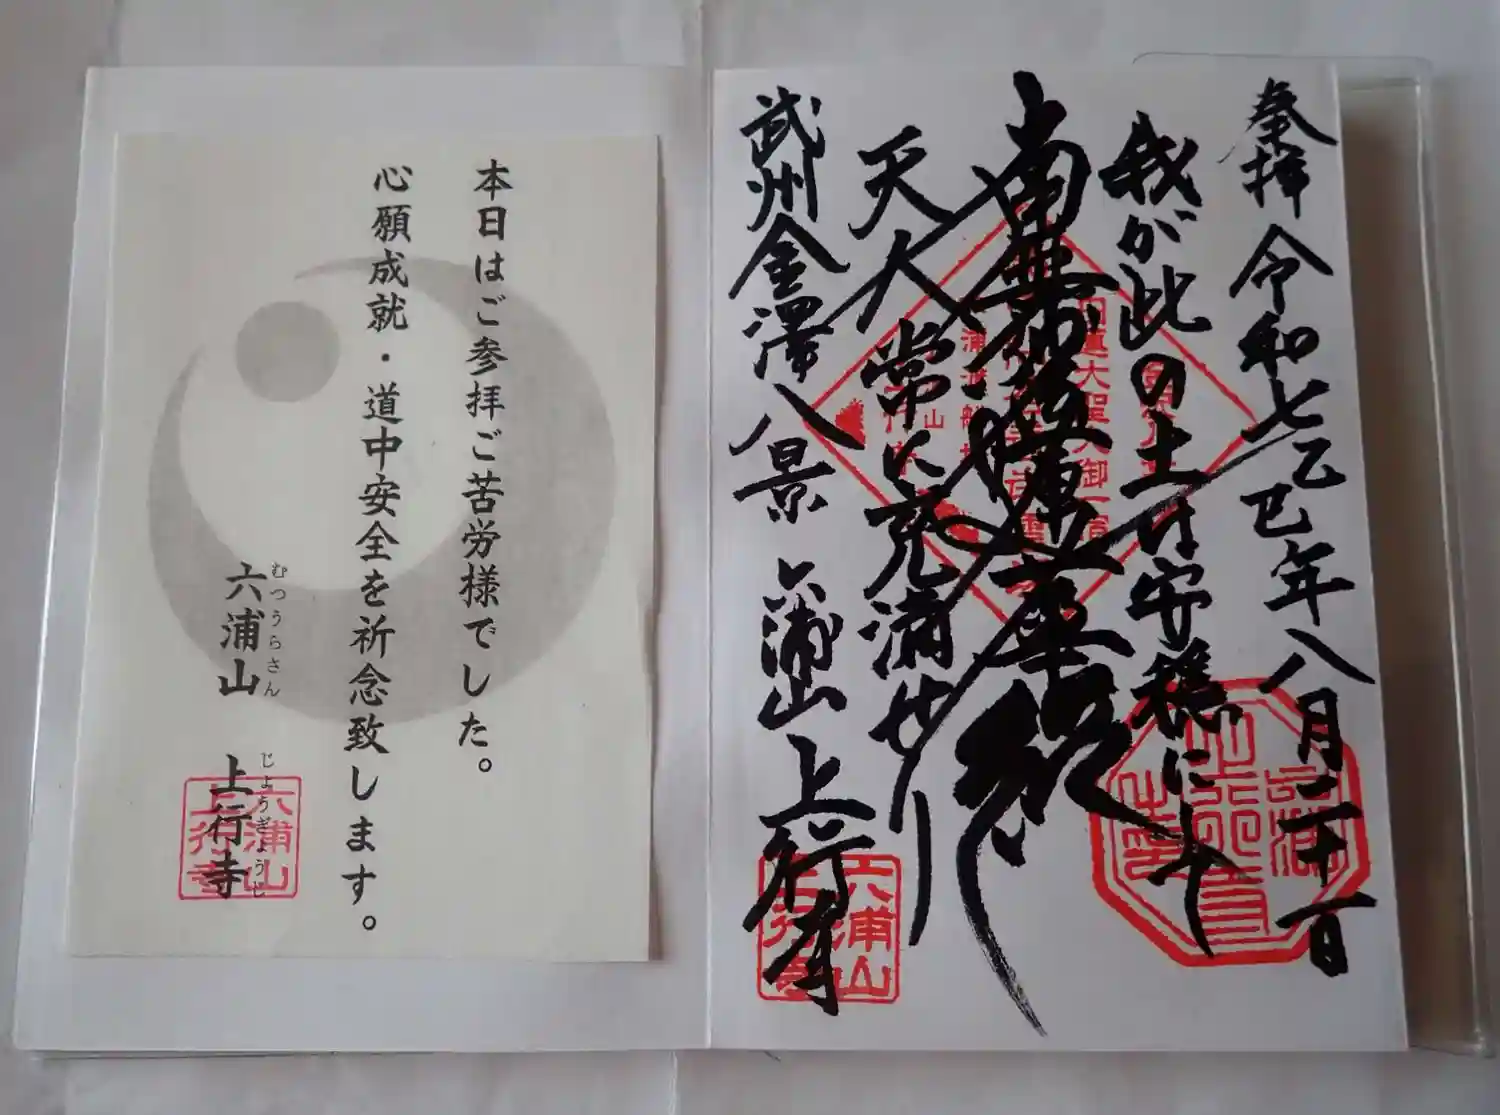 奉拝 令和七乙巳年八月二十一日
我が此の土は安穏にして
南無妙法蓮華経
天人常に充満せり
武州金澤八景 六浦山上行寺
六浦山
上行寺
本日はご参拝ご苦労様でした。
心願成就・道中安全を祈念致します。
むつうらさん じょうぎょうじ
六浦山 上行寺
六浦山
上行寺